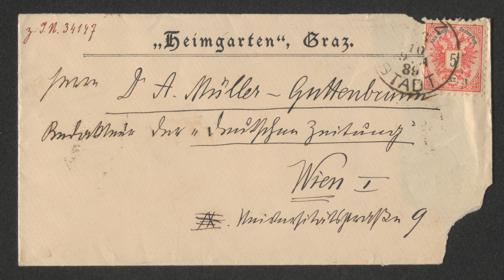 z J.N. 34147
„Heimgarten“, Graz.
Z
10
89
STADT
5
Herrn Dr A. Müller-Guttenbrunn
Redakteur der „Deutschen Zeitung
Wien I
Universitätsstraße 9